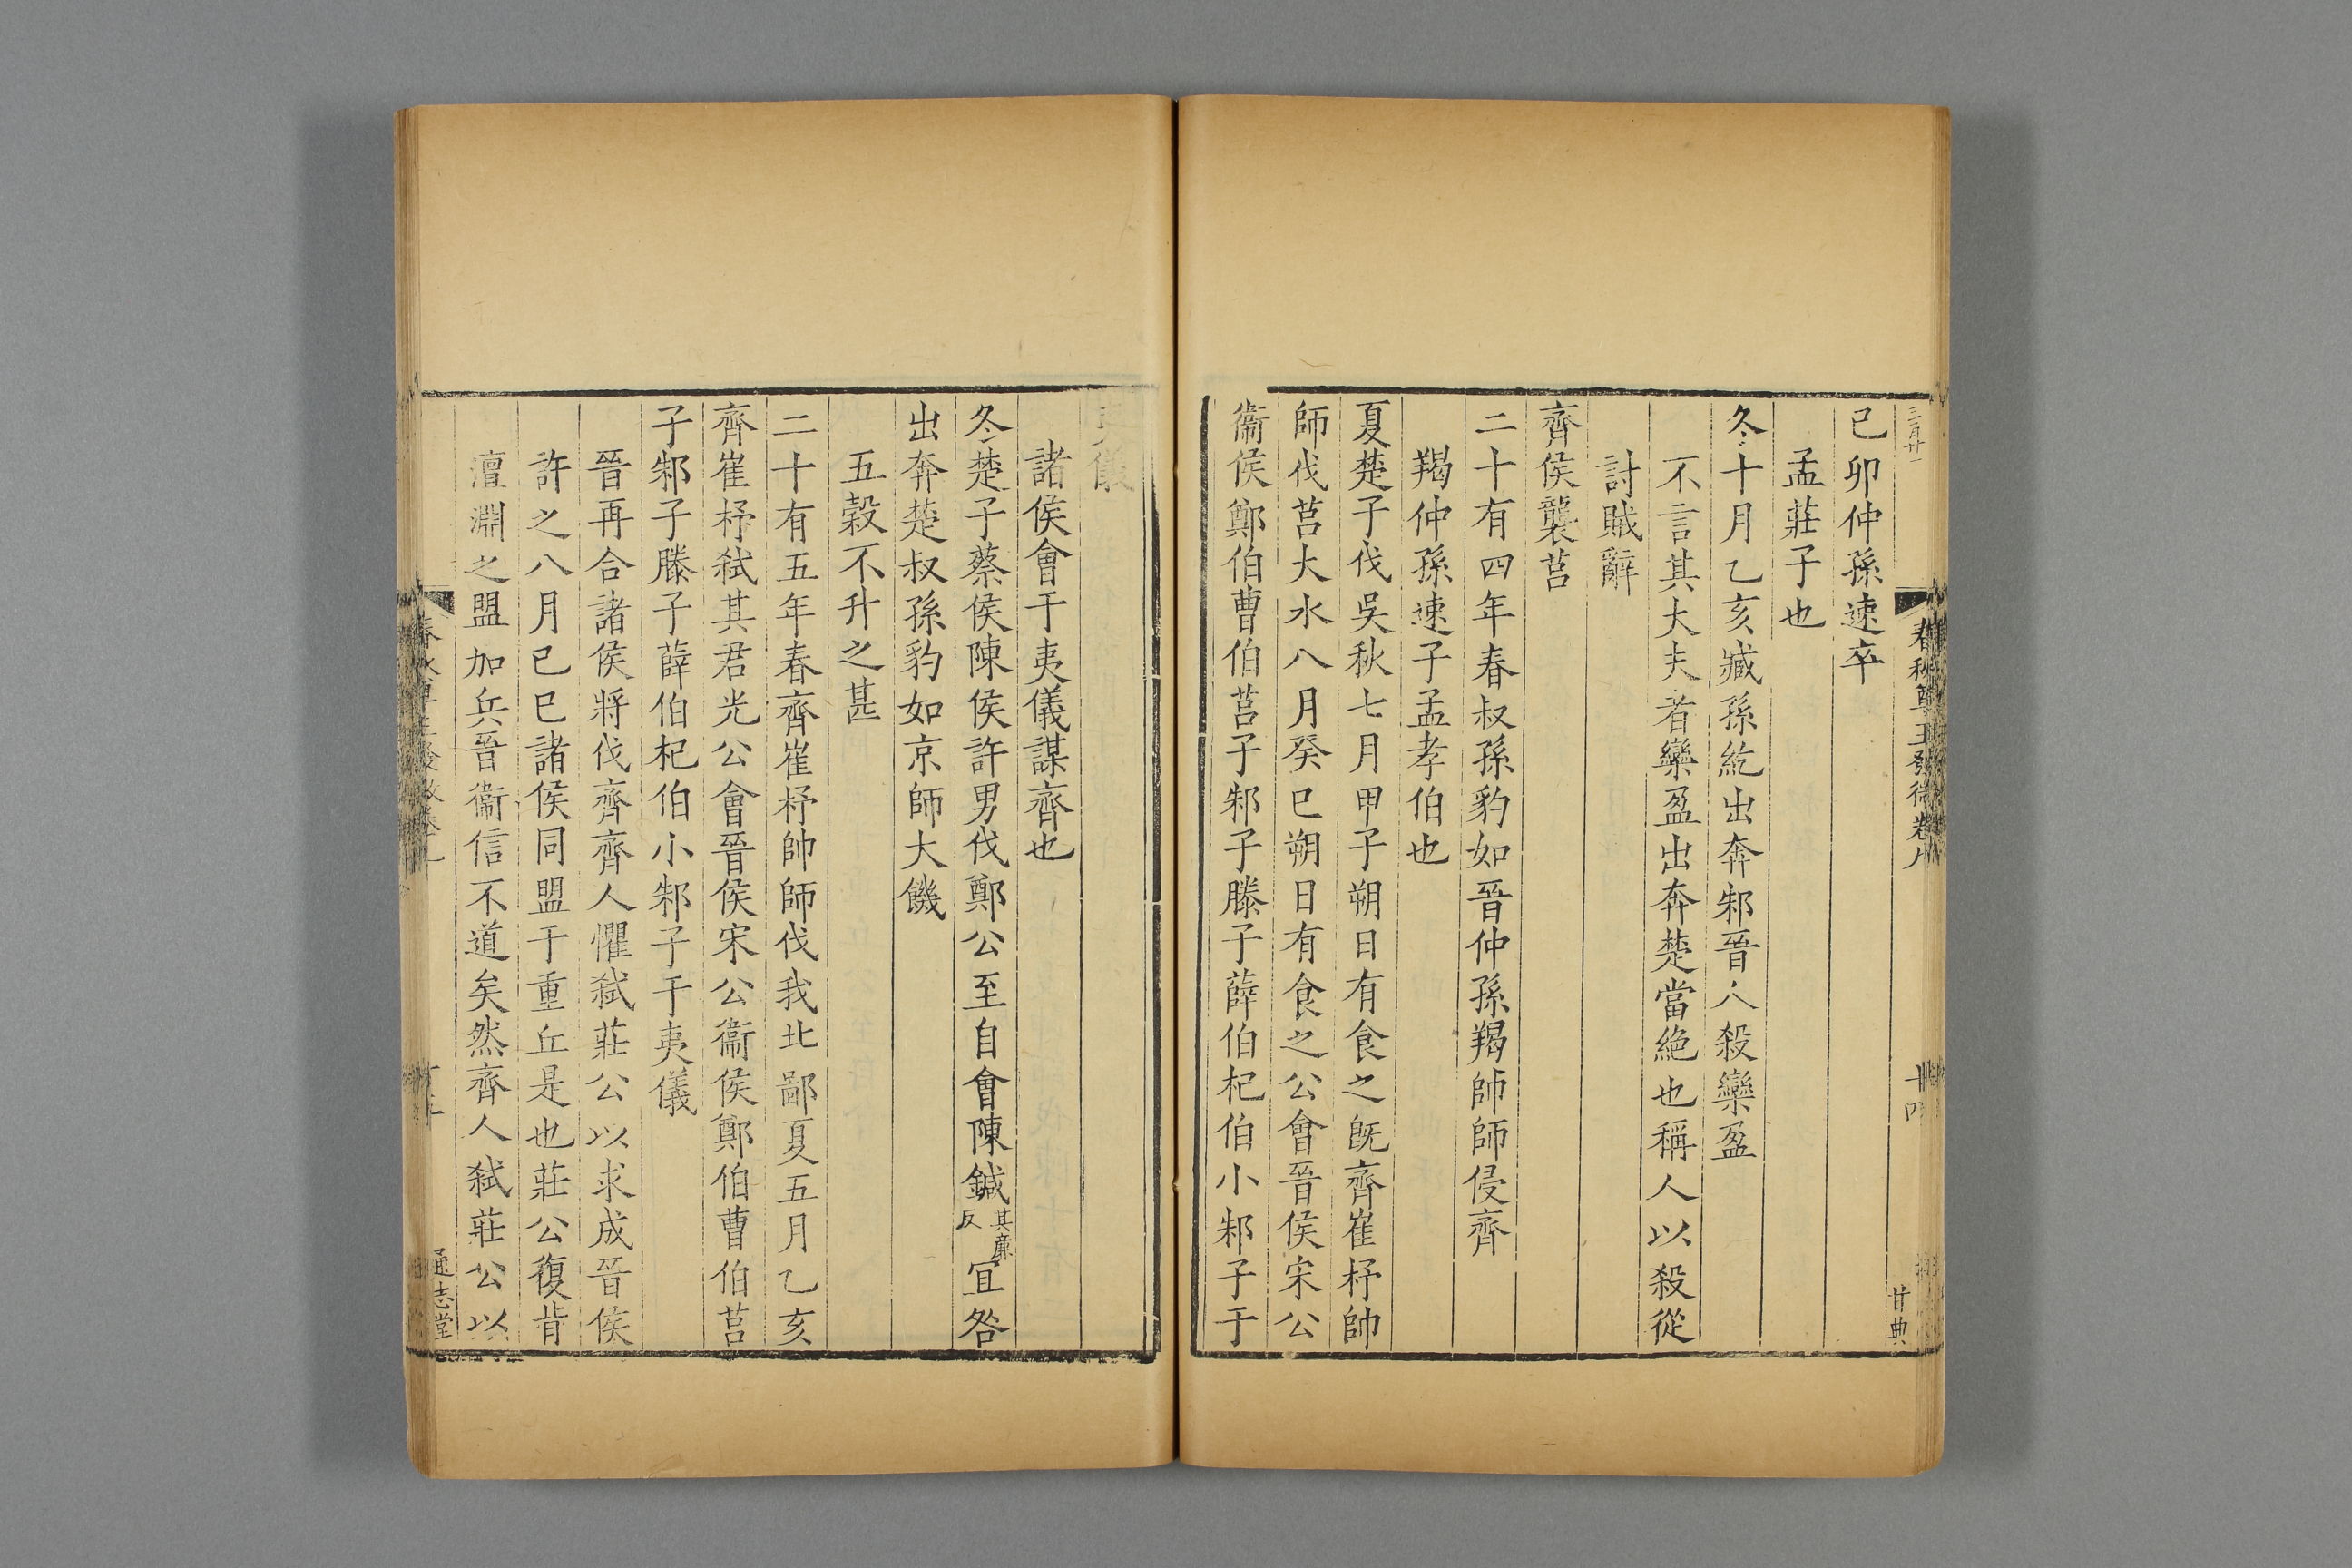 己卯仲孫速卒
孟莊子也
冬十月乙亥臧孫紇出奔邾晉人殺欒盈
不言其大夫者欒盈出奔楚當絶也稱人以殺從
討賊辭
齊侯襲莒
二十有四年春叔孫豹如晉仲孫羯帥師侵齊
羯仲孫速子孟孝伯也
夏楚子伐吳秋七月甲子朔日有食之旣齊崔杼帥
師伐莒大水八月癸巳朔日有食之公會晉侯宋公
衞侯鄭伯曹伯莒子邾子滕子薛伯杞伯小邾子于
夷儀
諸侯會于夷儀謀齊也
冬楚子蔡侯陳侯許男伐鄭公至自會陳鍼其廉反宜咎
出奔楚叔孫豹如京師大饑
五穀不升之甚
二十有五年春齊崔杼帥師伐我北鄙夏五月乙亥
齊崔杼弑其君光公會晉侯宋公衞侯鄭伯曹伯莒
子邾子滕子薛伯杞伯小邾子于夷儀
晉再合諸侯將伐齊齊人懼弑莊公以求成晉侯
許之八月己巳諸侯同盟于重丘是也莊公復背
澶淵之盟加兵晉衞信不道矣然齊人弑莊公以
春秋尊王發微卷九
十四
甘典
通志堂